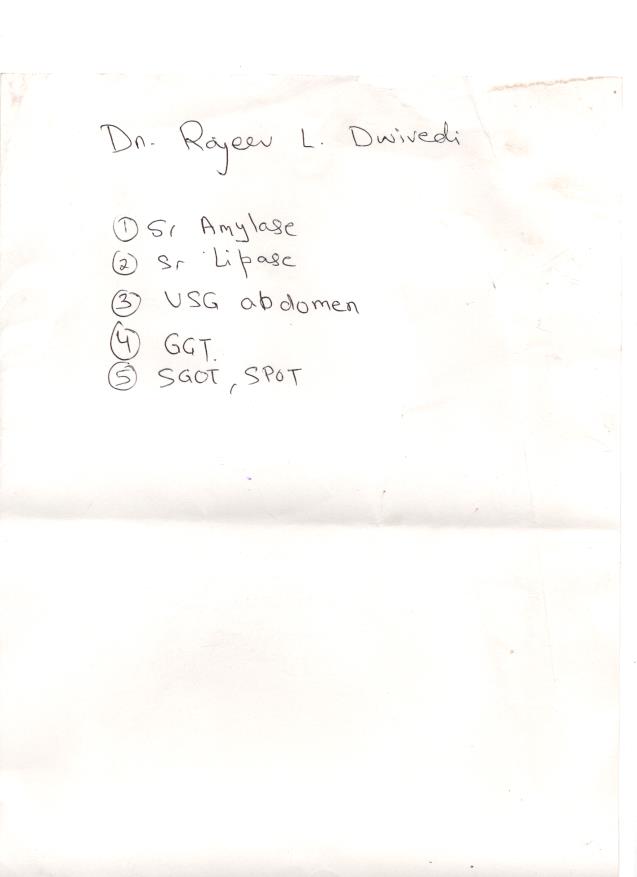 Dr. Rajeev L. Dwivedi
① Sr Amylase
② Sr Lipase
③ USG abdomen
④ GGT.
⑤ SGOT, SPOT